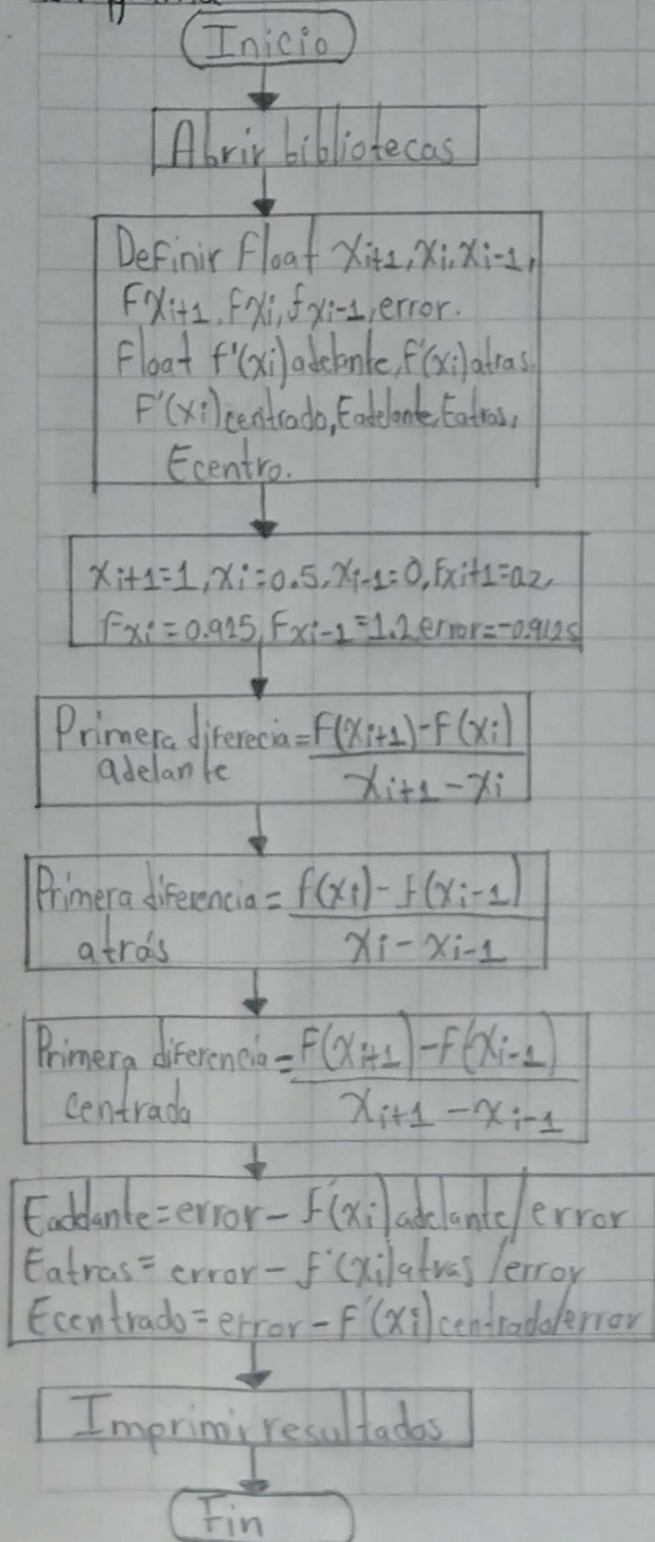 Inicio
Abrir bibliotecas
Definir Float Xi+1, Xi, Xi-1,
FXi+1, FXi, fxi-1, error.
Float f'(xi)adelante, F'(xi)atras,
F'(xi)centrado, Eadelante, Eatras,
Ecentro.
Xi+1=1, Xi=0.5, Xi-1=0, Fxi+1=0.2,
Fxi=0.925, Fxi-1=1.2 error=-0.9125
Primera diferecia = F(Xi+1)-F(Xi)
adelante Xi+1-Xi
Primera diferencia = f(xi)-f(xi-1)
atrás Xi-Xi-1
Primera diferencia = F(Xi+1)-F(Xi-1)
centrada Xi+1-Xi-1
Eadelante=error-f'(xi)adelante/error
Eatras=error-f'(xi)atras/error
Ecentrado=error-F'(xi)centrado/error
Imprimir resultados
Fin